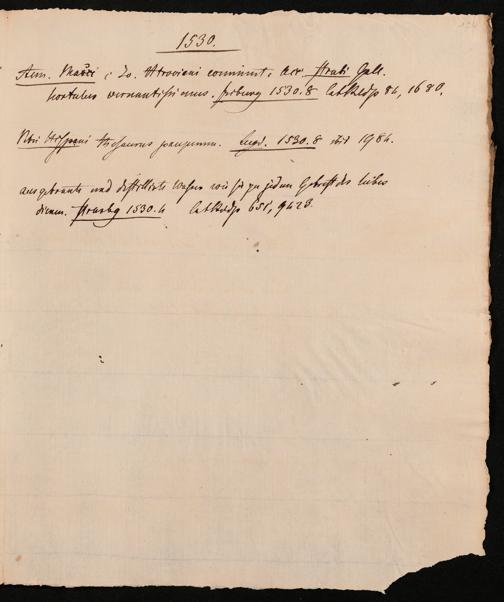 1530.
Aem. Macri c Jo. Atrociani comment. acc. Strabi Gall.
hortulus vernantissimus. friburg 1530. 8 Cat Rudp 84, 1680.
Petri Hispani thesaurus pauperum. Lugd. 1530. 8 ibid 1984.
ausgebrante und distillirte wasser wie sie zu jedem Gebrest des leibes
dienen. Strasbg 1530. 4 Cat 651, 9423.